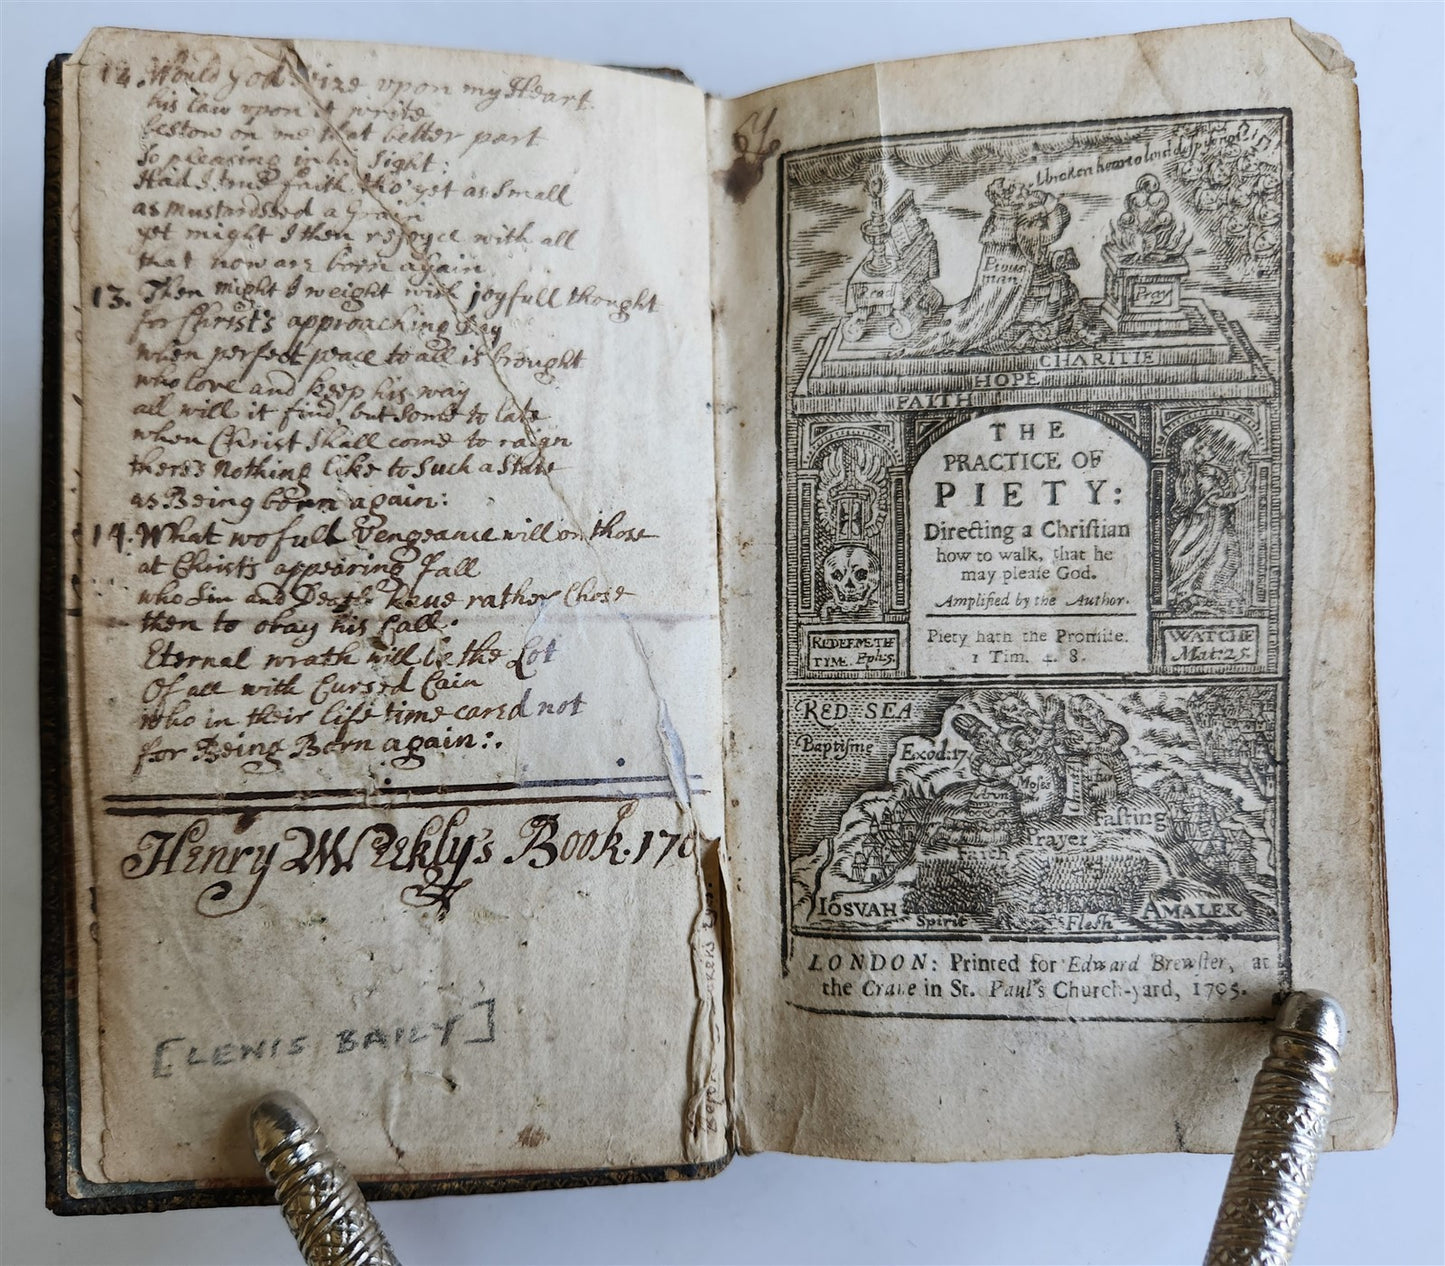 12. Would God seize upon my Heart.
his law upon it write
bestow on me that better part
So pleasing in his Sight:
Had I true faith tho' yet as Small
as mustardseed a Grain
yet might I then rejoyce with all
that now are born again
13. Then might I weight with joyfull thought
for Christ's approaching Day
when perfect peace to all is brought
who love and keep his way
all will it find but Some to late
when Christ Shall come to raign
there's nothing like to Such a State
as Being born again:
14. What wofull Vengeance will on those
at Christ's appearing fall
who Sin and Death have rather Chose
then to obay his Call:
Eternal wrath will be the Lot
Of all with Cursed Cain
who in their life time cared not
for Being Born again:.
Henry Weekly's Book. 170
[LENIS BAILY]
A broken heart o lord despise not
Pious
man
Pray
CHARITIE
HOPE
FAITH
THE
PRACTICE OF
PIETY:
Directing a Christian
how to walk, that he
may please God.
Amplified by the Author.
Piety hath the Promise.
1 Tim. 4. 8.
REDEEMETH
TIME. Eph:5.
WATCHE
Mat:25.
RED SEA
Baptisme
Exod:17
Aron
Moses
Fasting
Prayer
Faith
IOSVAH
Spirit
Flesh
AMALEK
LONDON: Printed for Edward Brewster, at
the Crane in St. Paul's Church-yard, 1705.